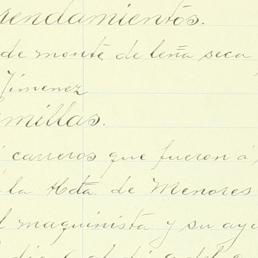 rendamientos.
de monte de leña seca
Jimenez
millas.
carreros que fueron á
la Hda de Menores
l maquinista y su ayu